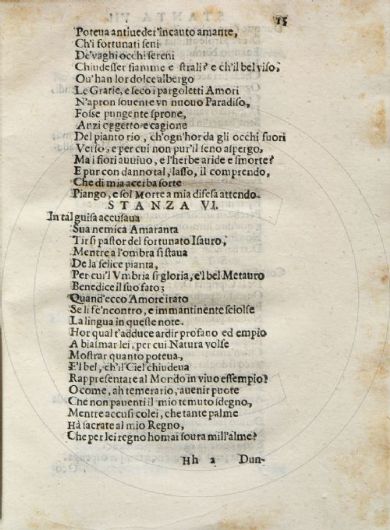 15
Poteua antiueder l'incauto amante,
Ch'i fortunati seni
De' vaghi occhi sereni
Chiudesser fiamme e strali? e ch'il bel viso,
Ou'han lor dolce albergo
Le Gratie, e seco i pargoletti Amori
N'apron souente vn nuouo Paradiso,
Fosse pungente sprone,
Anzi oggetto e cagione
Del pianto rio, ch'ogn'hor da gli occhi fuori
Verso, e per cui non pur'il seno aspergo,
Ma i fiori auuiuo, e l'herbe aride e smorte?
E pur con danno tal, lasso, il comprendo,
Che di mia acerba sorte
Piango, e sol Morte a mia difesa attendo.
STANZA VI.
In tal guisa accusaua
Sua nemica Amaranta
Tirsi pastor del fortunato Isauro,
Mentre a l'ombra si staua
De la felice pianta,
Per cui l'Vmbria si gloria, e'l bel Metauro
Benedice il suo fato;
Quand'ecco Amore irato
Se li fe'ncontro, e immantinente sciolse
La lingua in queste note.
Hor qual t'adduce ardir profano ed empio
A biasmar lei, per cui Natura volse
Mostrar quanto poteua,
E'l bel, ch'il Ciel chiudeua
Rappresentare al Mondo in viuo essempio?
O come, ah temerario, auenir puote
Che non pauenti il mio temuto sdegno,
Mentre accusi colei, che tante palme
Hà sacrate al mio Regno,
Che per lei regno homai soura mill'alme?
Hh 2 Dun-